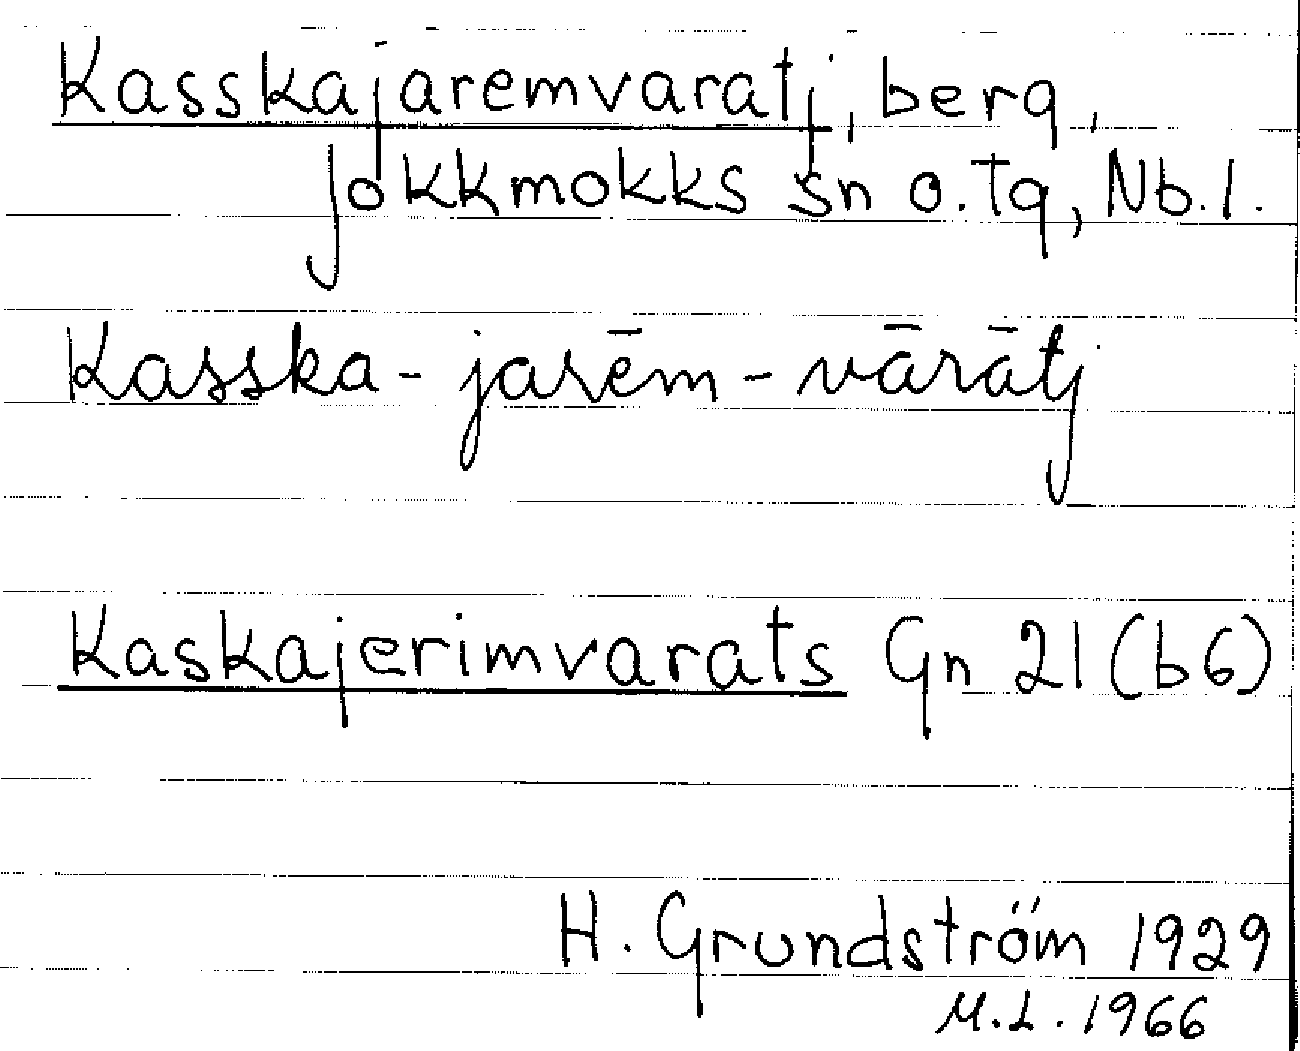 Kasskajaremvaratj, berg,
Jokkmokks sn o. tg, Nb. l.
Kasska-jarēm-vārātj
Kaskajerimvarats Gn 21 (b6)
H. Grundström 1929
M.L. 1966